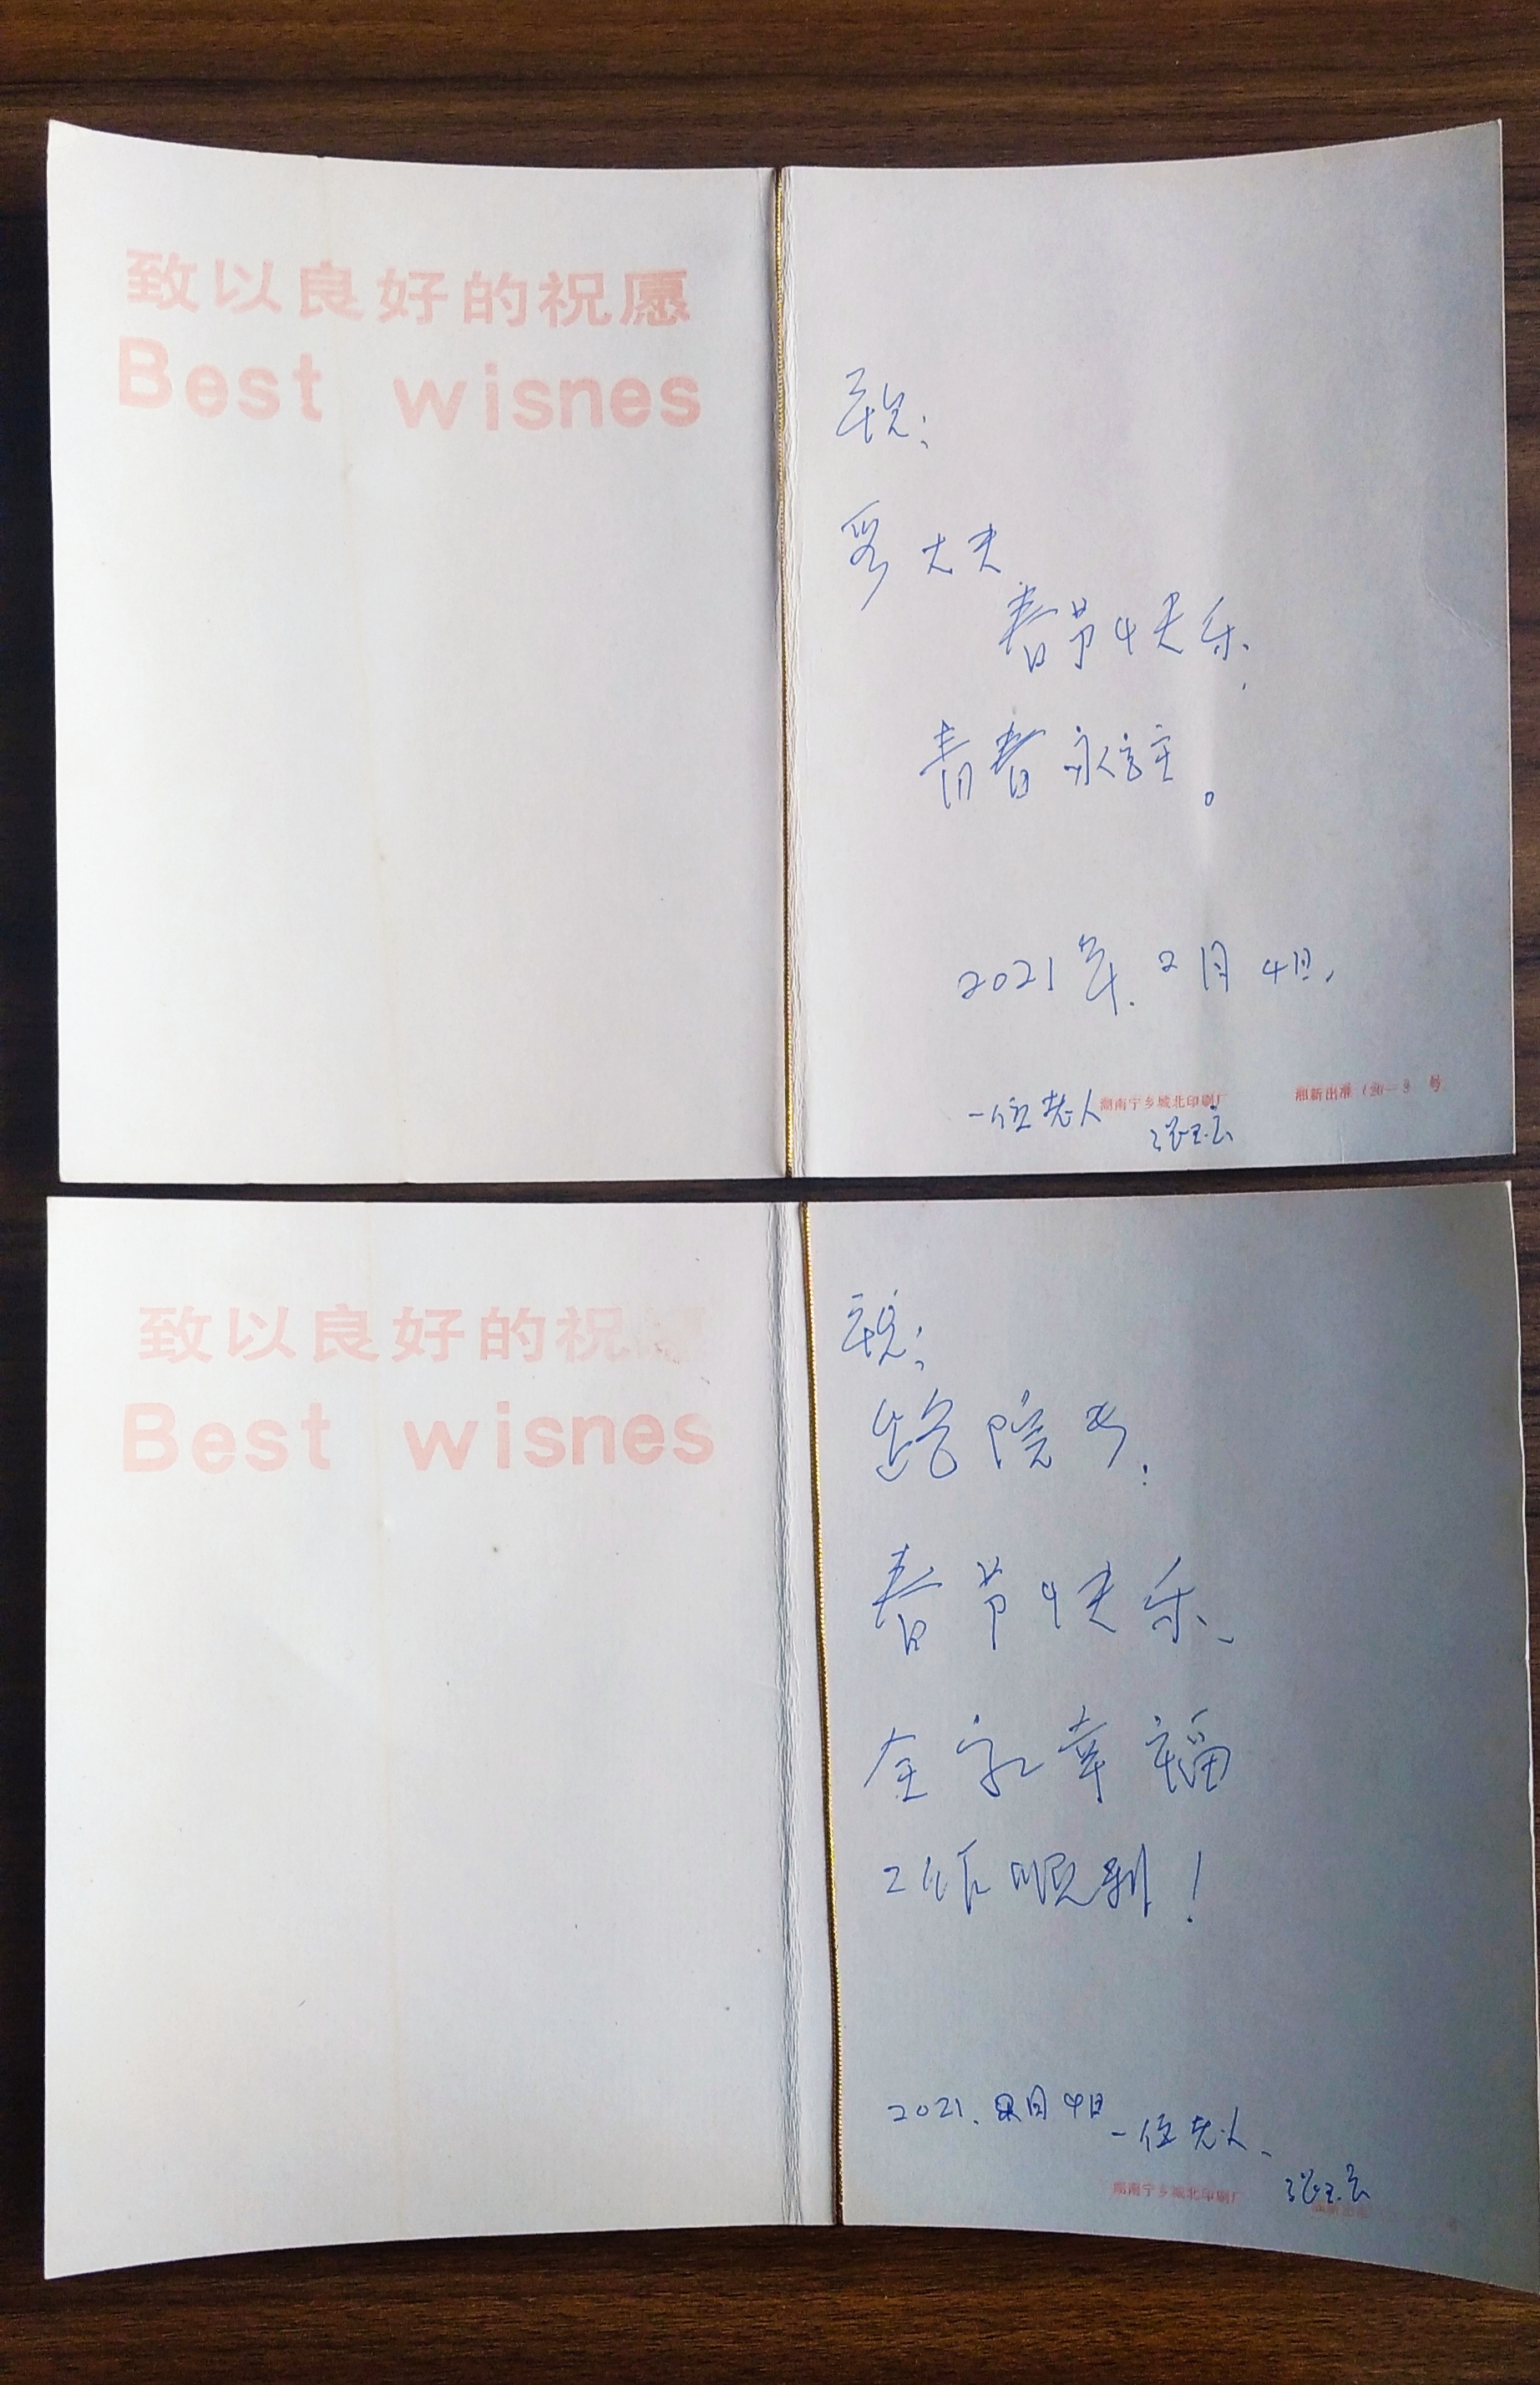 致以良好的祝愿
Best wisnes
祝:
大夫
春节快乐,
青春永驻。
2021年.2月4日,
一位老人
湖南宁乡城北印刷厂
号
致以良好的祝
Best wisnes
祝:
路院长.
春节快乐、
全家幸福
工作顺利!
2021.2月4日
一位老人、
湖南宁乡城北印刷厂